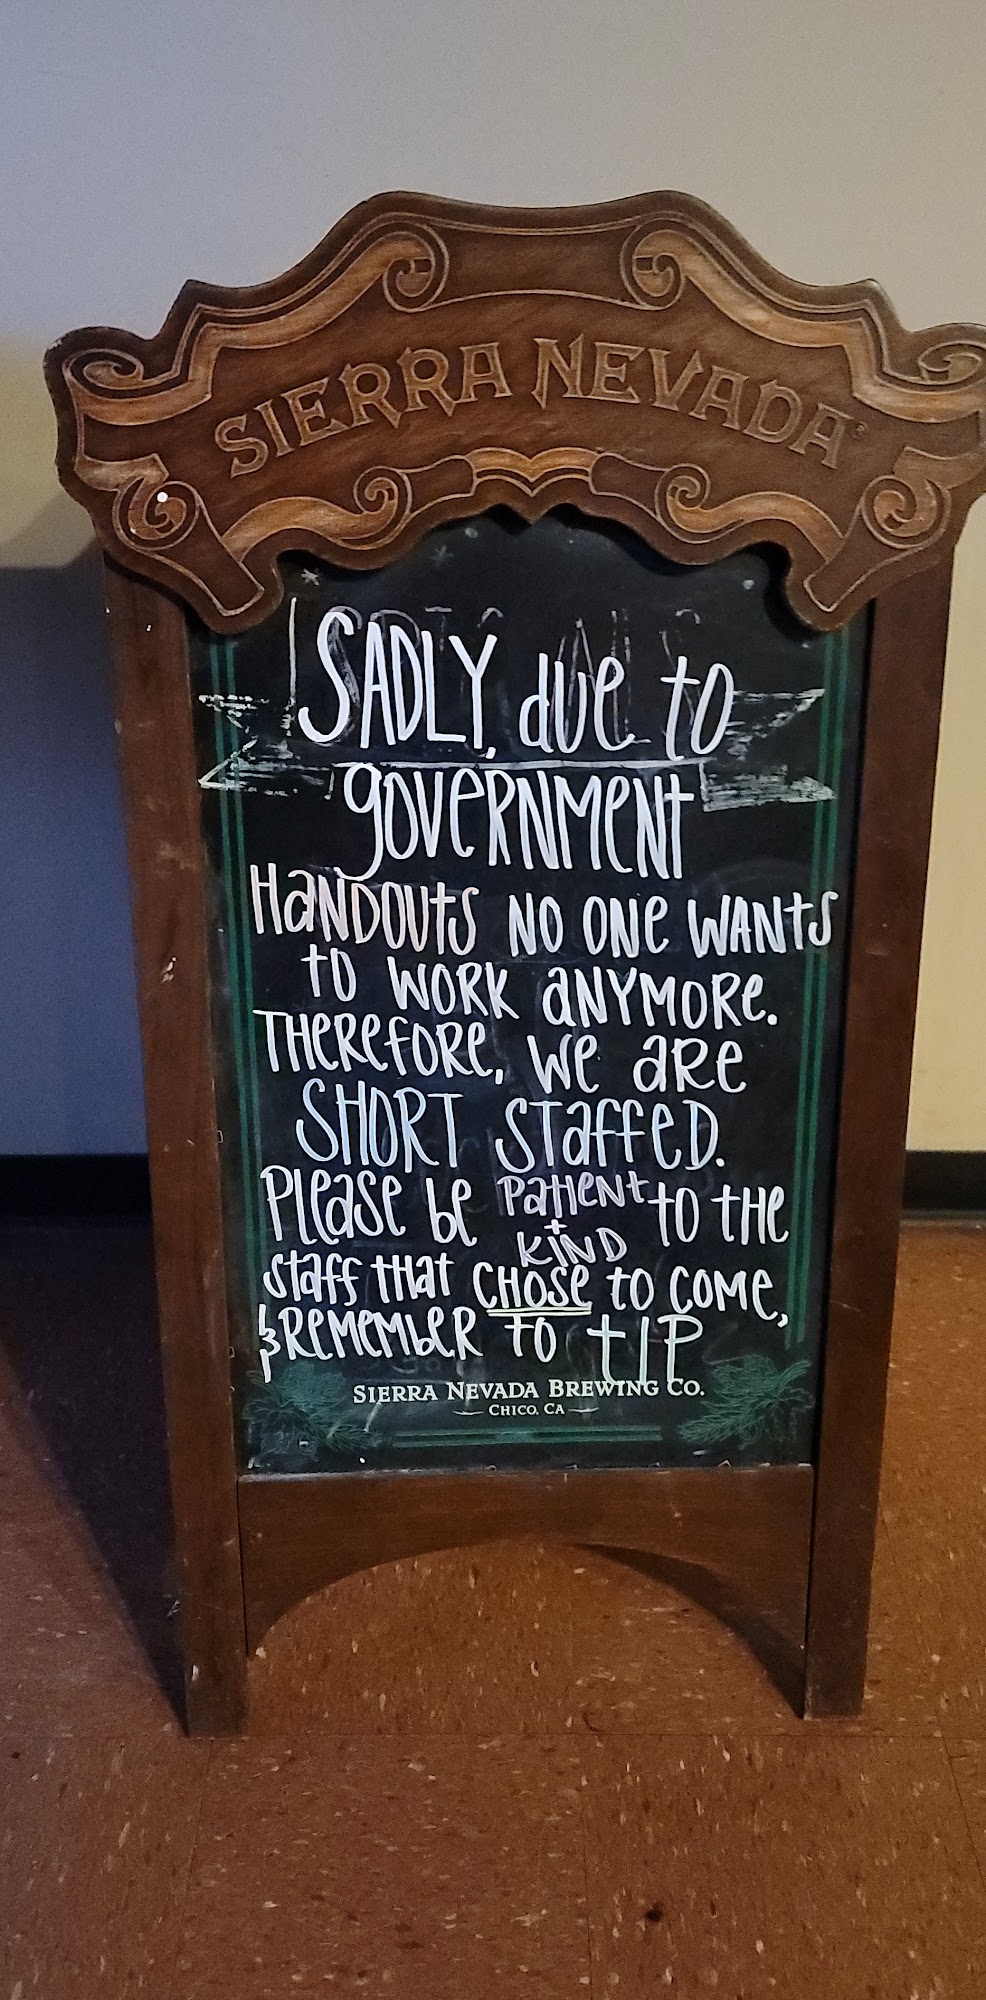 SIERRA NEVADA®
SADLY, due to
government
Handouts no one wants
to work anymore.
Therefore, we are
SHORT Staffed.
Please be patient + kind to the
staff that chose to come,
& remember to tip
Sierra Nevada Brewing Co.
Chico, CA